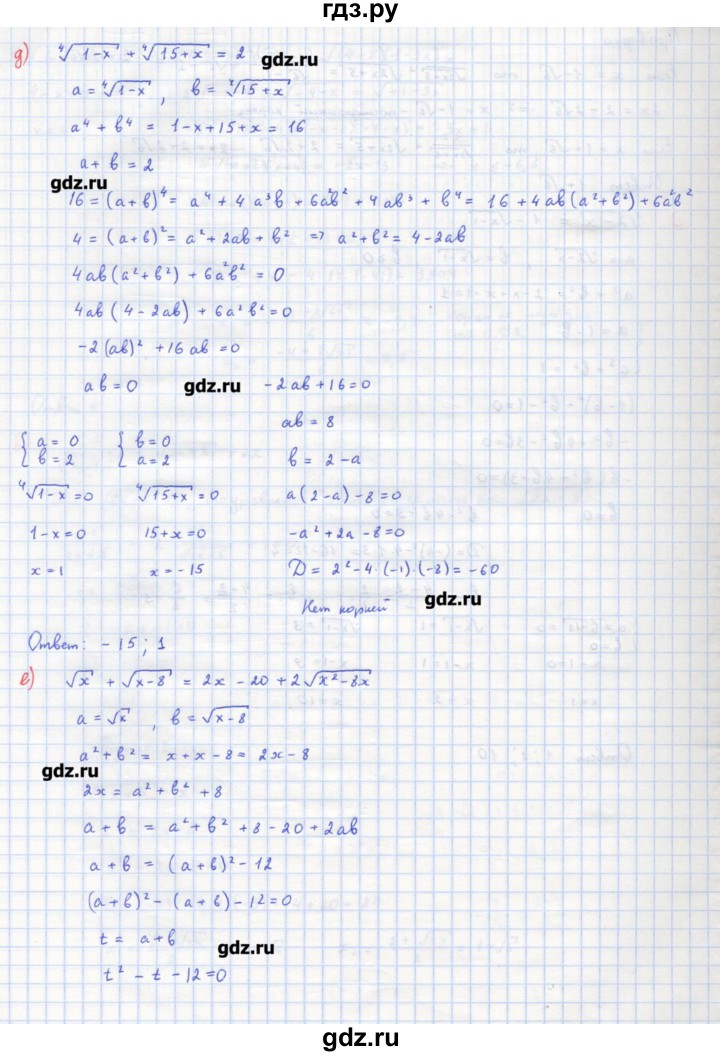 гдз.ру
д) ∜(1-x) + ∜(15+x) = 2
gdz.ru
a = ∜(1-x) , b = ∜(15+x)
a⁴ + b⁴ = 1-x+15+x = 16
a + b = 2
gdz.ru
16 = (a+b)⁴ = a⁴ + 4a³b + 6a²b² + 4ab³ + b⁴ = 16 + 4ab(a²+b²) + 6a²b²
4 = (a+b)² = a² + 2ab + b² ⇒ a²+b² = 4-2ab
4ab(a²+b²) + 6a²b² = 0
4ab(4-2ab) + 6a²b² = 0
-2(ab)² + 16ab = 0
ab = 0 gdz.ru -2ab+16=0
ab = 8
{a = 0 {b = 0
b = 2 a = 2 b = 2-a
∜(1-x) = 0 ∜(15+x) = 0 a(2-a)-8=0
1-x=0 15+x=0 -a²+2a-8=0
x=1 x=-15 D = 2²-4·(-1)·(-8) = -60
Нет корней gdz.ru
Ответ: -15; 1
е) √x + √(x-8) = 2x - 20 + 2√(x²-8x)
a = √x , b = √(x-8)
a²+b² = x+x-8 = 2x-8
gdz.ru
2x = a²+b²+8
a+b = a²+b²+8-20+2ab
a+b = (a+b)²-12
(a+b)²-(a+b)-12=0
t = a+b
gdz.ru
t²-t-12=0
gdz.ru